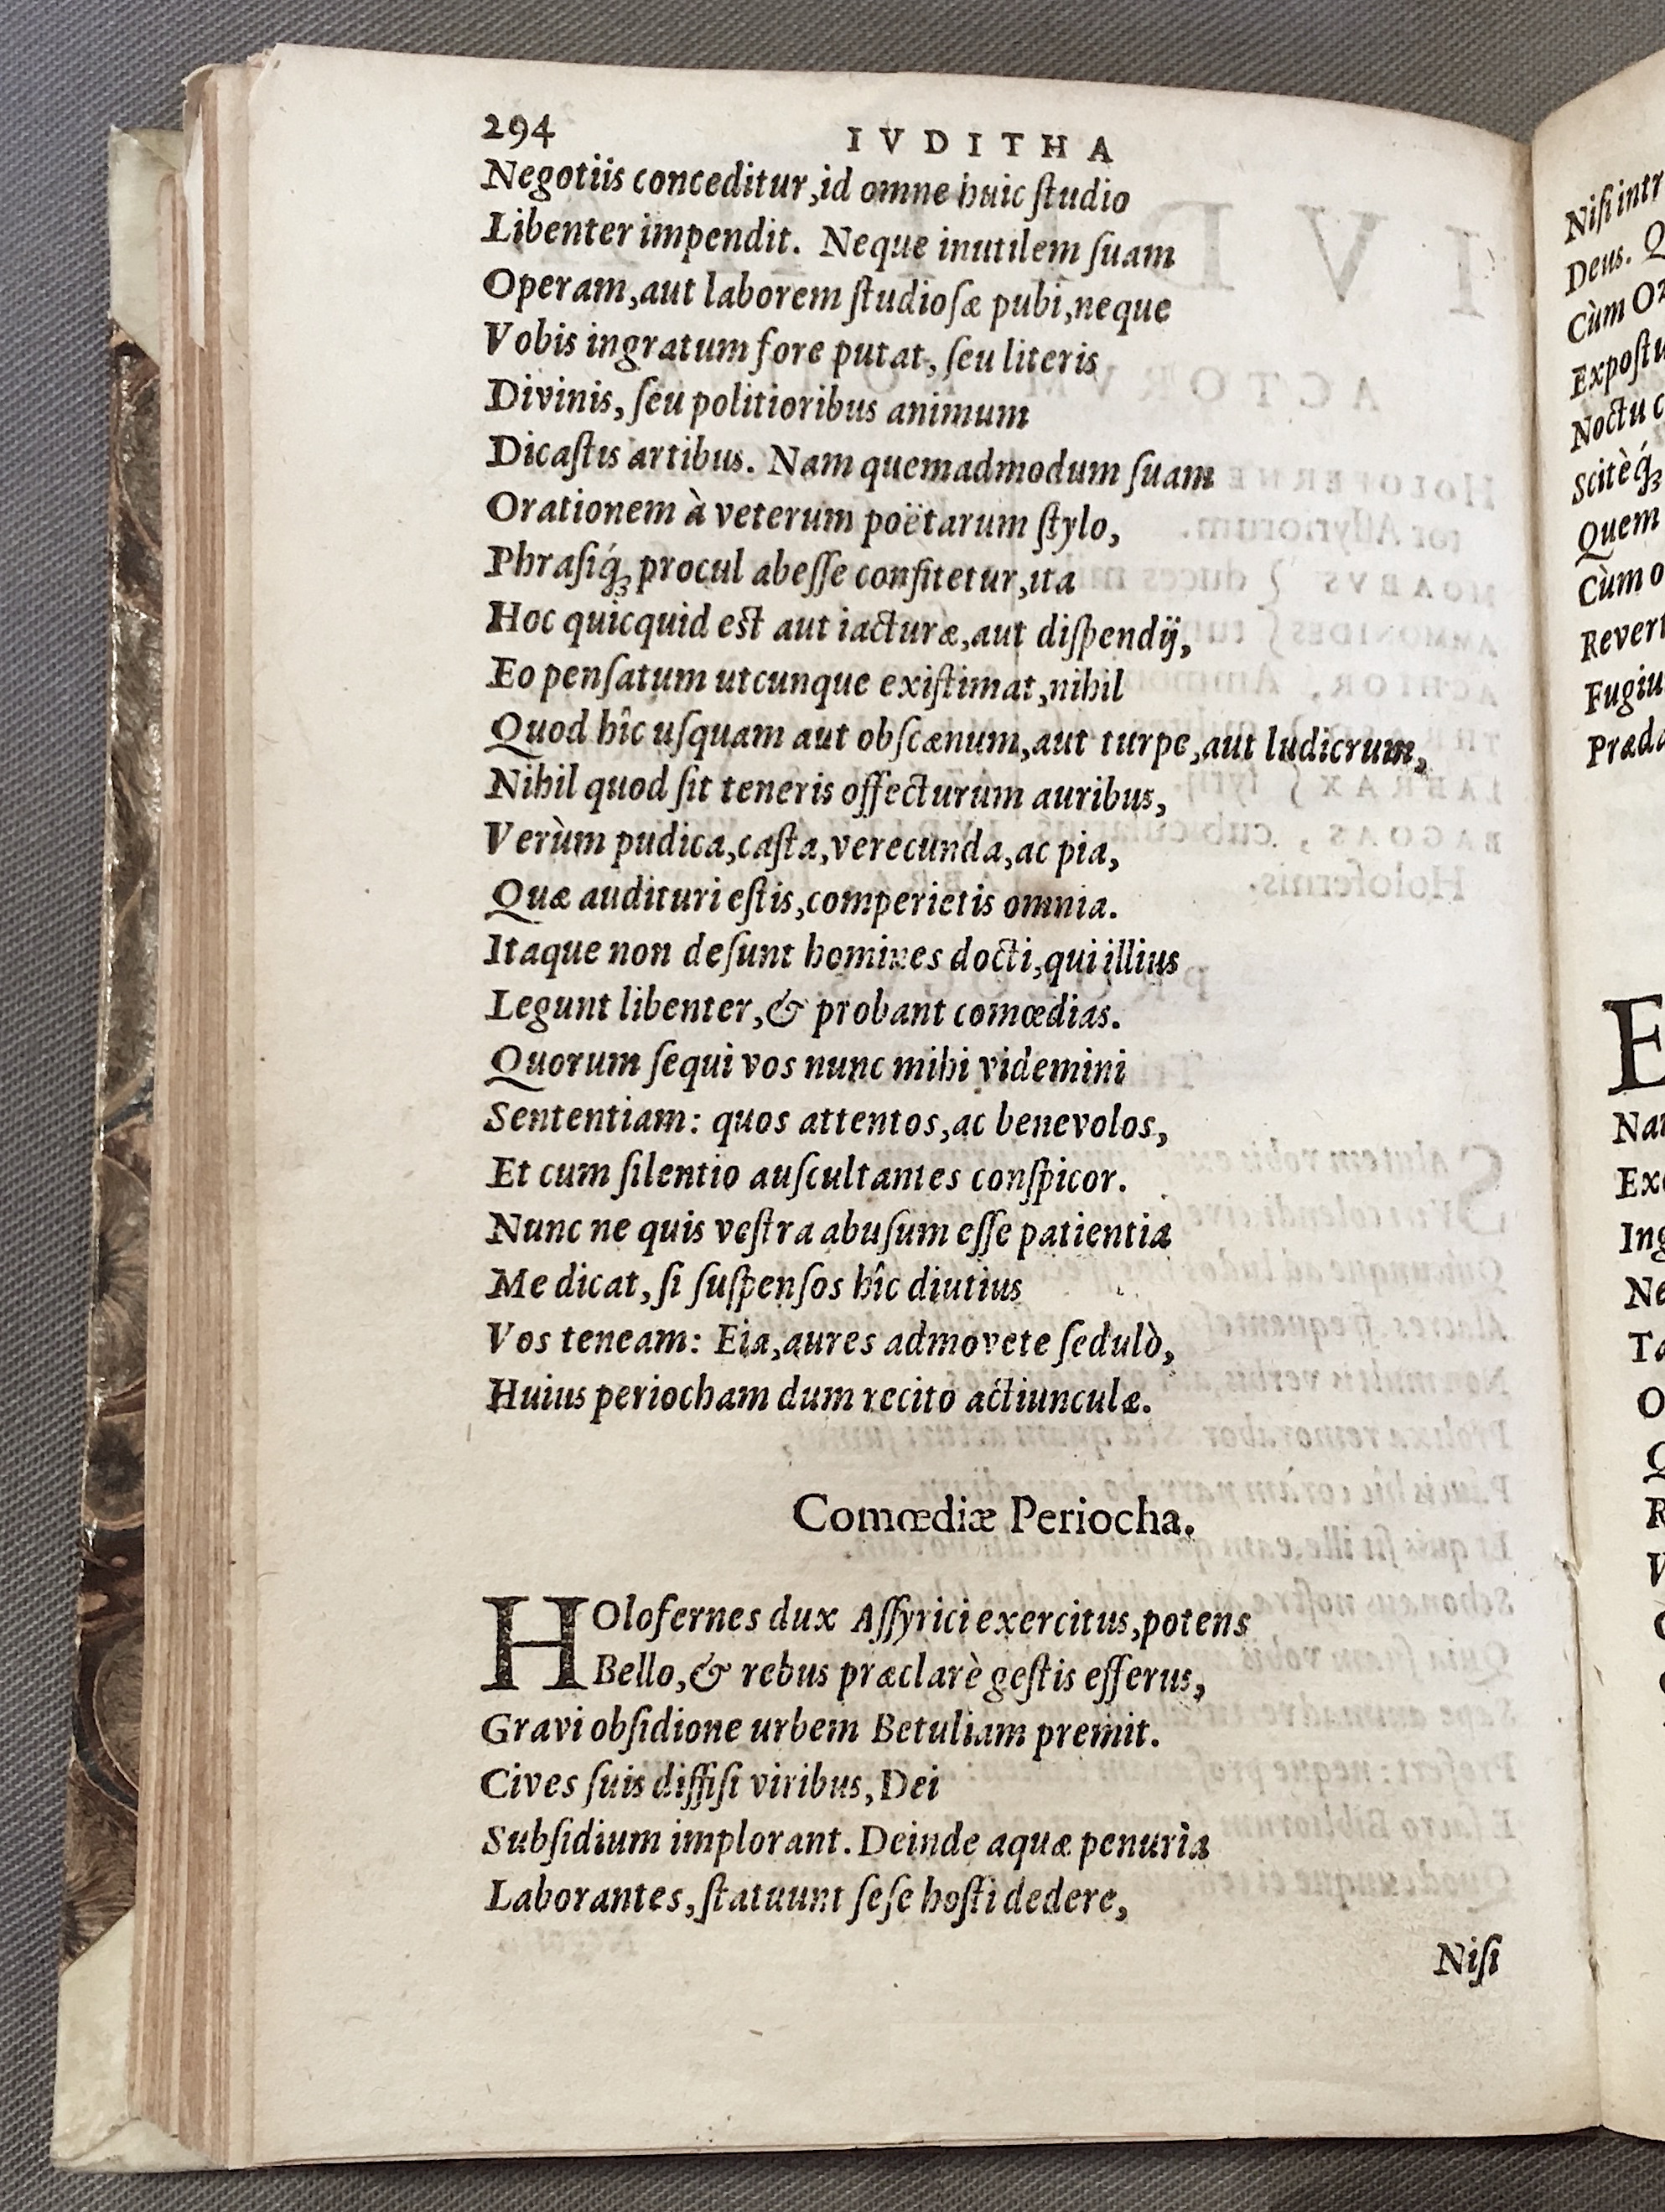 294
IVDITHA
Negotiis conceditur,id omne huic ſtudio
Libenter impendit. Neque inutilem ſuam
Operam,aut laborem ſtudioſæ pubi,neque
Vobis ingratum fore putat, ſeu literis
Divinis, ſeu politioribus animum
Dicaſtis artibus. Nam quemadmodum ſuam
Orationem à veterum poëtarum ſtylo,
Phraſiq́ꝫ procul abeſſe confitetur,ita
Hoc quicquid est aut iacturæ,aut diſpendij,
Eo penſatum utcunque exiſtimat,nihil
Quod hîc uſquam aut obſcænum,aut turpe,aut ludicrum,
Nihil quod ſit teneris offecturum auribus,
Verùm pudica,caſta,verecunda,ac pia,
Quæ audituri eſtis,comperietis omnia.
Itaque non deſunt homines docti,qui illius
Legunt libenter,& probant comœdias.
Quorum ſequi vos nunc mihi videmini
Sententiam: quos attentos,ac benevolos,
Et cum ſilentio auſcultantes conſpicor.
Nunc ne quis veſtra abuſum eſſe patientia
Me dicat, ſi ſuſpenſos hîc diutius
Vos teneam: Eia,aures admovete ſedulò,
Huius periocham dum recito actiunculæ.
Comœdiæ Periocha.
HOlofernes dux Aſſyrici exercitus,potens
Bello,& rebus præclarè geſtis efferus,
Gravi obſidione urbem Betuliam premit.
Cives ſuis diffiſi viribus, Dei
Subſidium implorant. Deinde aquæ penuria
Laborantes, ſtatuunt ſeſe hoſti dedere,
Niſi
Niſi intr
Deus. Q
Cùm
Expoſtu
Noctu c
Scitèq́ꝫ
Quem
Cùm o
Revert
Fugiu
Præda
E
Nar
Ex
Ing
Ne
Ta
O
Q
R
V